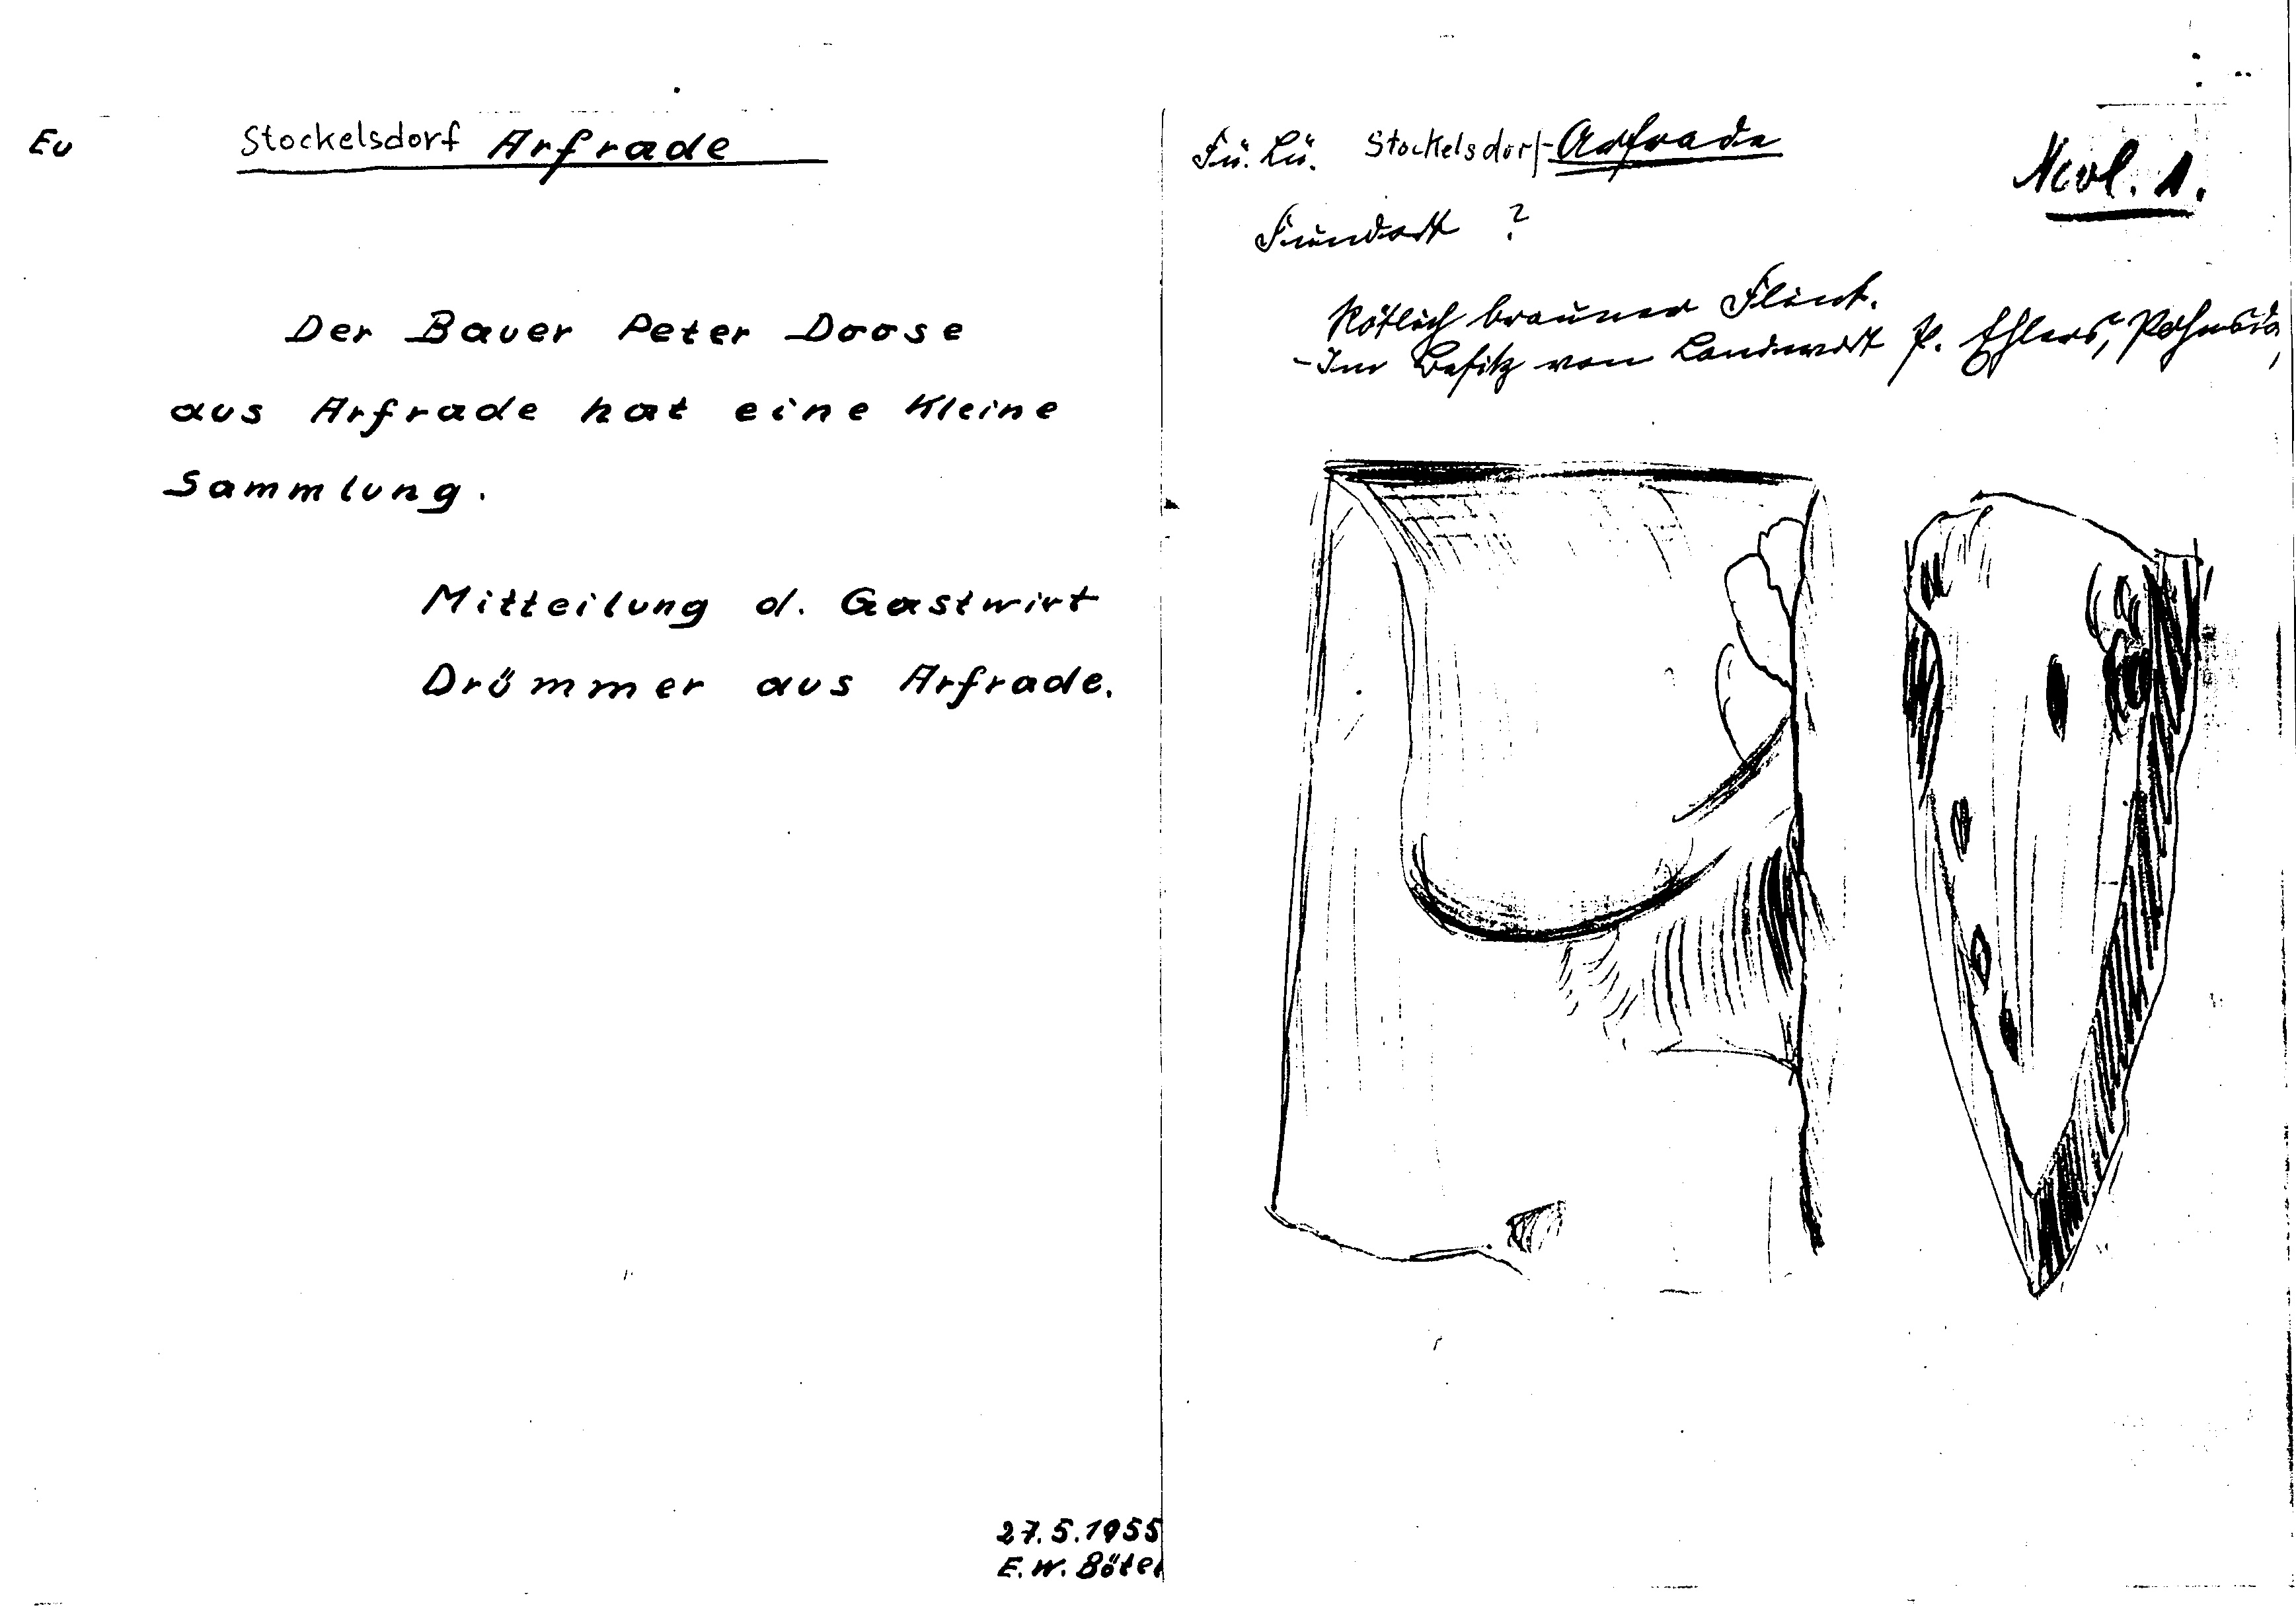 Eu Stockelsdorf Arfrade
Der Bauer Peter Doose
aus Arfrade hat eine Kleine
Sammlung.
Mitteilung d. Gastwirt
Drümmer aus Arfrade.
27.5.1955
E. W. Bötel
Fü. Lü. Stockelsdorf-Arfrade
Neol. 1.
Fundort ?
Rötlich brauner Flint.
-Im Besitz von Landwirt P. Ehlers,